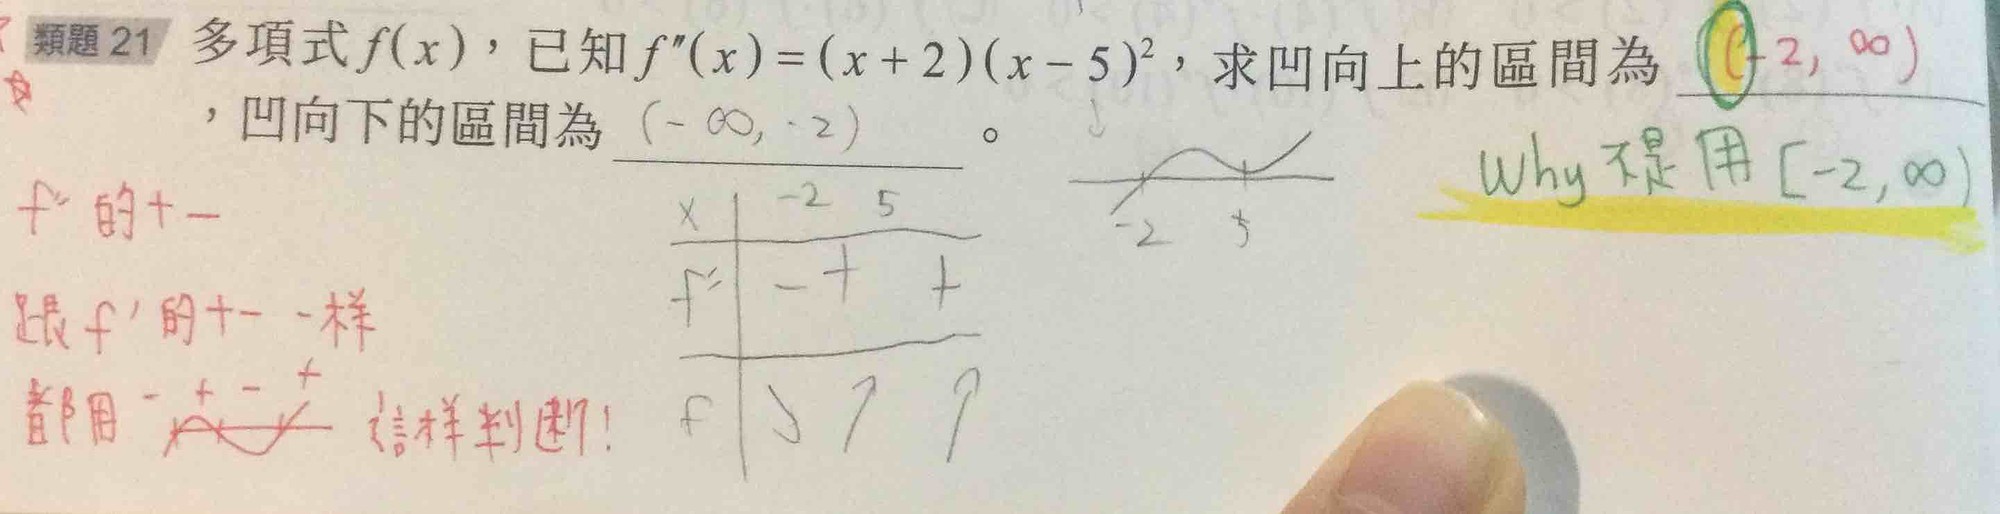 類題 21 多項式 f(x)，已知 f″(x)=(x+2)(x−5)²，求凹向上的區間為 (-2, ∞)
，凹向下的區間為 (-∞, -2) 。
Why 不是用 [-2, ∞)
f″ 的 + −
跟 f′ 的 + − 一样
都用 - + - + 這样判斷!
x -2 5
f″ - + +
f
-2 5